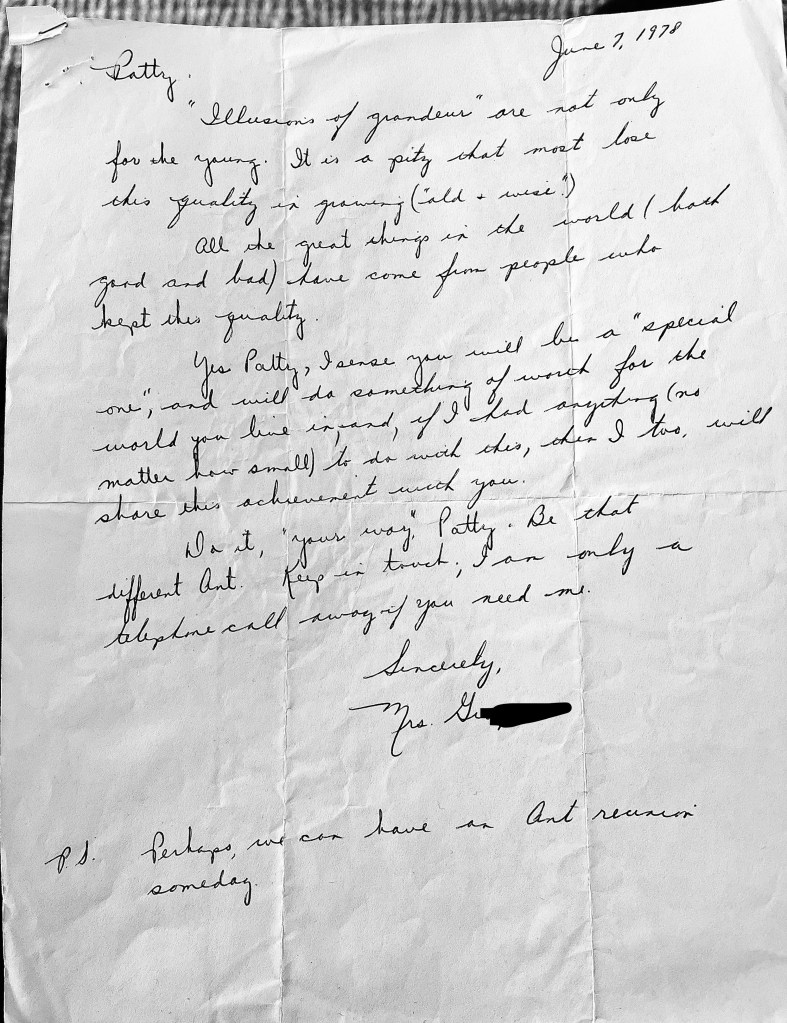 June 7, 1978
Patty.
"Illusions of grandeur" are not only
for the young. It is a pity that most lose
this quality in growing ("old + wise".)
All the great things in the world (both
good and bad) have come from people who
kept this quality.
Yes Patty, I sense you will be a "special
one", and will do something of worth for the
world you live in, and, if I had anything (no
matter how small) to do with this, then I too, will
share this achievement with you.
Do it, "your way", Patty. Be that
different Ant. Keep in touch, I am only a
telephone call away if you need me.
Sincerely,
Mrs. G
P.S. Perhaps, we can have an Ant reunion
someday.